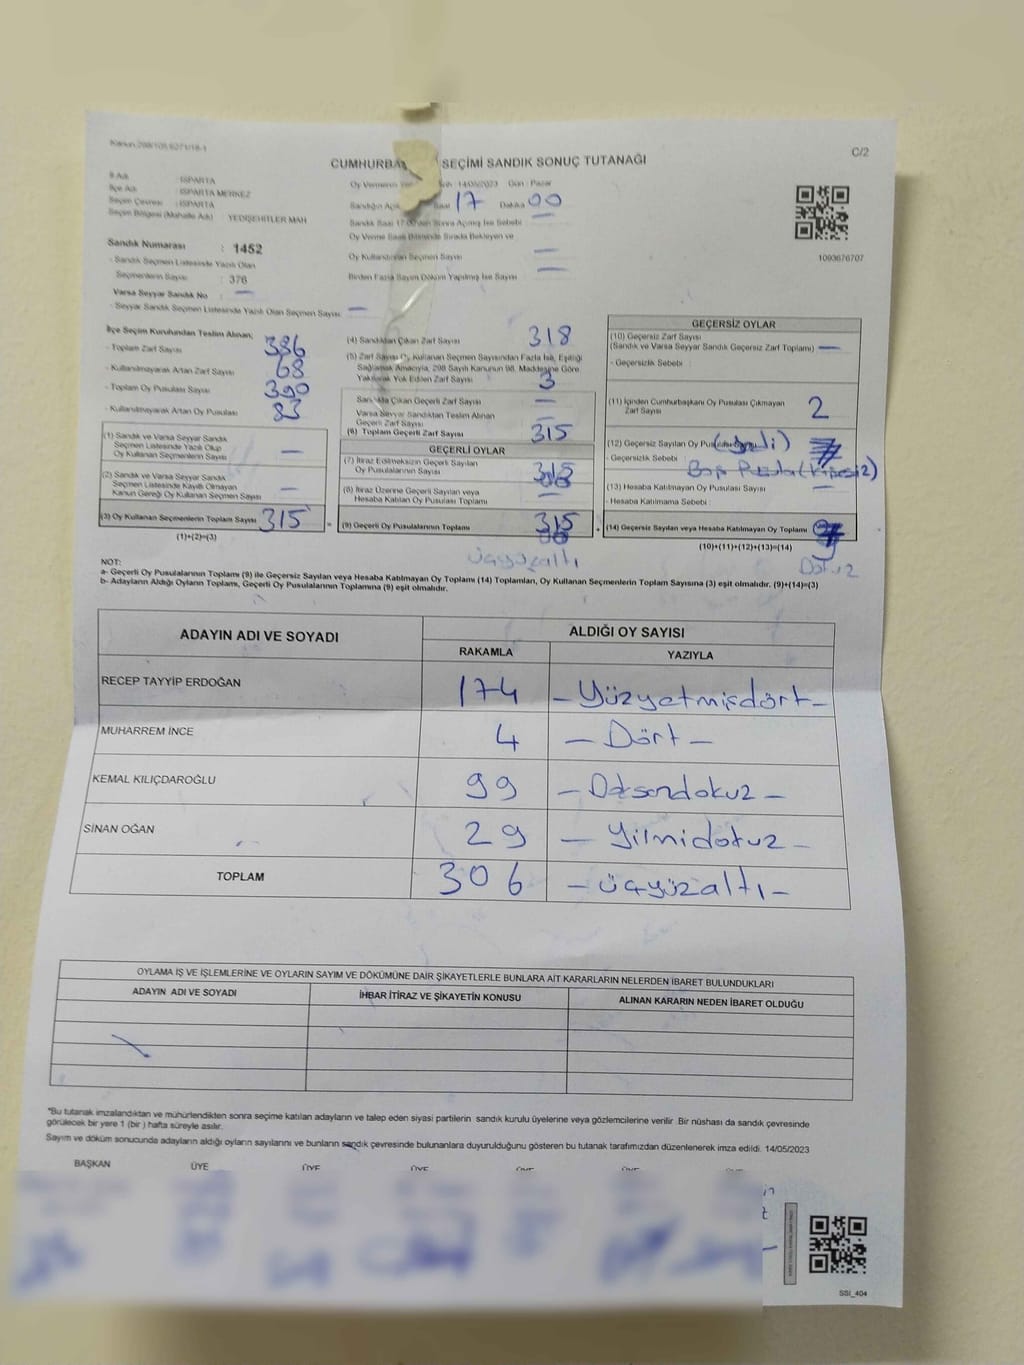 CUMHURBA SEÇİMİ SANDIK SONUÇ TUTANAĞI
C/2
İl Adı : ISPARTA
İlçe Adı : ISPARTA MERKEZ
Seçim Çevresi : ISPARTA
Seçim Bölgesi (Mahalle Adı) YEDİŞEHİTLER MAH
Sandık Numarası : 1452
- Sandık Seçmen Listesinde Yazılı Olan
Seçmenlerin Sayısı : 376
Varsa Seyyar Sandık No —
- Seyyar Sandık Seçmen Listesinde Yazılı Olan Seçmen Sayısı —
Oy Vermenin 14/05/2023 Gün : Pazar
Sandığın Açıl Saat 17 Dakika 00
Sandık Saat 17:00'den Sonra Açılmış İse Sebebi —
Oy Verme Saati Bitiminde Sırada Bekleyen ve
Oy Kullandırılan Seçmen Sayısı —
Birden Fazla Sayım Döküm Yapılmış İse Sayısı —
1093676707
İlçe Seçim Kurulundan Teslim Alınan;
- Toplam Zarf Sayısı 386
- Kullanılmayarak Artan Zarf Sayısı 68
- Toplam Oy Pusulası Sayısı 390
- Kullanılmayarak Artan Oy Pusulası 83
(1) Sandık ve Varsa Seyyar Sandık
Seçmen Listesinde Yazılı Olup
Oy Kullanan Seçmenlerin Sayısı —
(2) Sandık ve Varsa Seyyar Sandık
Seçmen Listesinde Kayıtlı Olmayan
Kanun Gereği Oy Kullanan Seçmen Sayısı —
(3) Oy Kullanan Seçmenlerin Toplam Sayısı 315
(1)+(2)=(3)
(4) Sandıktan Çıkan Zarf Sayısı 318
(5) Zarf Sayısı Oy Kullanan Seçmen Sayısından Fazla İse, Eşitliği
Sağlamak Amacıyla, 298 Sayılı Kanunun 98. Maddesine Göre
Yakılarak Yok Edilen Zarf Sayısı 3
Sandıkta Çıkan Geçerli Zarf Sayısı —
Varsa Seyyar Sandıktan Teslim Alınan
Geçerli Zarf Sayısı —
(6) Toplam Geçerli Zarf Sayısı 315
GEÇERLİ OYLAR
(7) İtiraz Edilmeksizin Geçerli Sayılan
Oy Pusulalarının Sayısı
(8) İtiraz Üzerine Geçerli Sayılan veya
Hesaba Katılan Oy Pusulası Toplamı —
= (9) Geçerli Oy Pusulalarının Toplamı 315
üçyüzaltı
GEÇERSİZ OYLAR
(10) Geçersiz Zarf Sayısı
(Sandık ve Varsa Seyyar Sandık Geçersiz Zarf Toplamı) —
- Geçersizlik Sebebi :
(11) İçinden Cumhurbaşkanı Oy Pusulası Çıkmayan
Zarf Sayısı 2
(12) Geçersiz Sayılan Oy (yedi) 7
- Geçersizlik Sebebi Boş Pusula
(13) Hesaba Katılmayan Oy Pusulası Sayısı —
- Hesaba Katılmama Sebebi :
+ (14) Geçersiz Sayılan veya Hesaba Katılmayan Oy Toplamı 9
(10)+(11)+(12)+(13)=(14)
Dokuz
NOT:
a- Geçerli Oy Pusulalarının Toplamı (9) ile Geçersiz Sayılan veya Hesaba Katılmayan Oy Toplamı (14) Toplamları, Oy Kullanan Seçmenlerin Toplam Sayısına (3) eşit olmalıdır. (9)+(14)=(3)
b- Adayların Aldığı Oyların Toplamı, Geçerli Oy Pusulalarının Toplamına (9) eşit olmalıdır.
ADAYIN ADI VE SOYADI ALDIĞI OY SAYISI
RAKAMLA YAZIYLA
RECEP TAYYİP ERDOĞAN 174 - Yüzyetmişdört -
MUHARREM İNCE 4 - Dört -
KEMAL KILIÇDAROĞLU 99 - Doksandokuz -
SİNAN OĞAN 29 - Yirmidokuz -
TOPLAM 306 - üçyüzaltı -
OYLAMA İŞ VE İŞLEMLERİNE VE OYLARIN SAYIM VE DÖKÜMÜNE DAİR ŞİKAYETLERLE BUNLARA AİT KARARLARIN NELERDEN İBARET BULUNDUKLARI
ADAYIN ADI VE SOYADI İHBAR İTİRAZ VE ŞİKAYETİN KONUSU ALINAN KARARIN NEDEN İBARET OLDUĞU
*Bu tutanak imzalandıktan ve mühürlendikten sonra seçime katılan adayların ve talep eden siyasi partilerin sandık kurulu üyelerine veya gözlemcilerine verilir. Bir nüshası da sandık çevresinde
görülecek bir yere 1 (bir) hafta süreyle asılır.
Sayım ve döküm sonucunda adayların aldığı oyların sayılarını ve bunların sandık çevresinde bulunanlara duyurulduğunu gösteren bu tutanak tarafımızdan düzenlenerek imza edildi. 14/05/2023
BAŞKAN ÜYE ÜYE ÜYE ÜYE ÜYE ÜYE
SSI_404